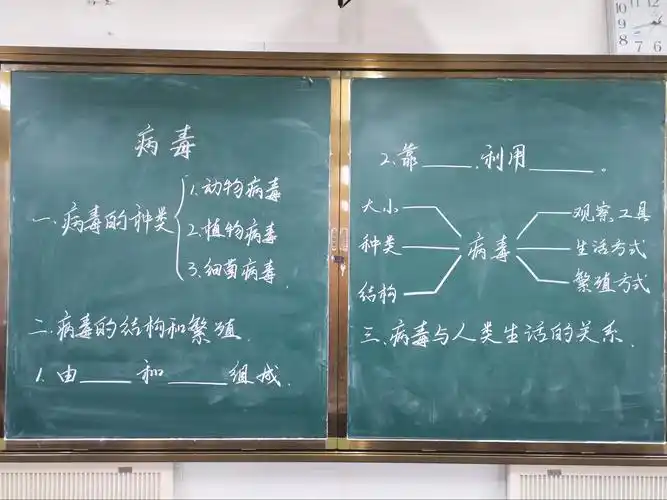 病毒
一.病毒的种类
1.动物病毒
2.植物病毒
3.细菌病毒.
二.病毒的结构和繁殖.
1.由____和____组成.
2.靠____.利用____。
大小
种类
结构
病毒
观察工具
生活方式
繁殖方式
三.病毒与人类生活的关系.
11 12
10
9
8
7 6